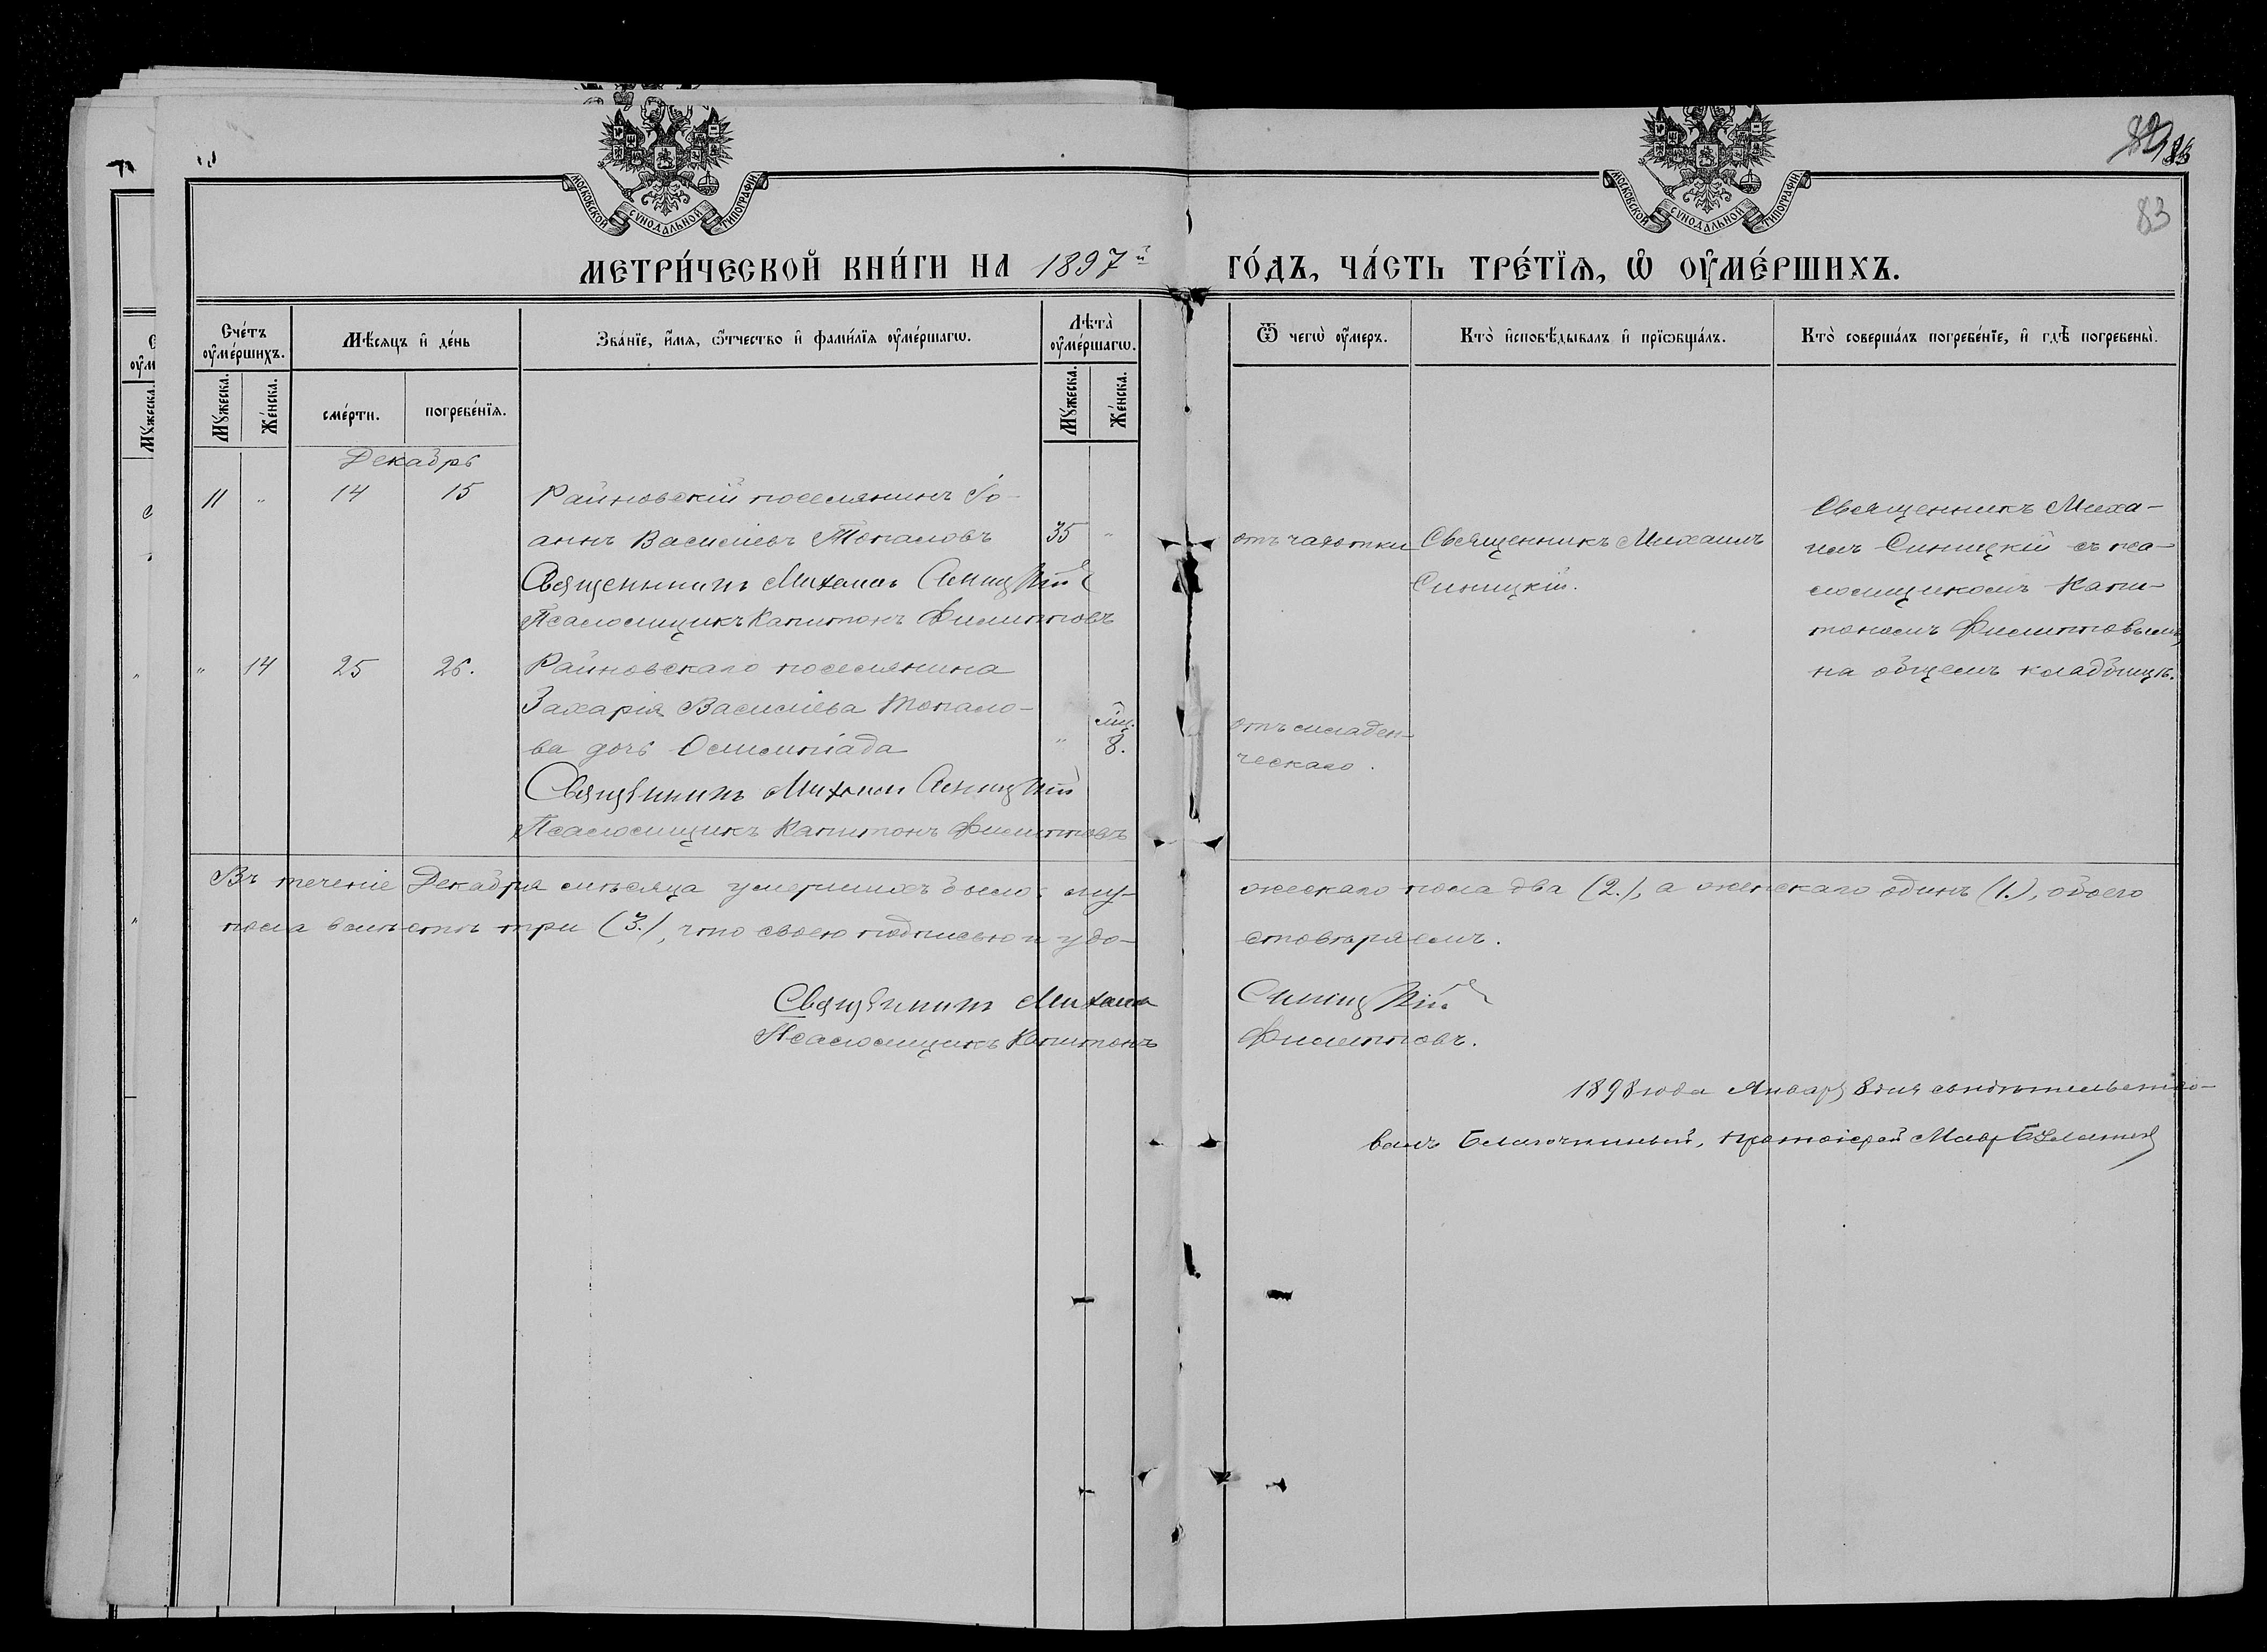 МОСКОВСКОЙ СѴНОДАЛЬНОЙ ТИПОГРАФІИ
МОСКОВСКОЙ СѴНОДАЛЬНОЙ ТИПОГРАФІИ
83
МЕТРИ́ЧЕСКОЙ КНИ́ГИ НА 1897й ГО́ДЪ, ЧА́СТЬ ТРЕ́ТЇѦ, Ѡ҆ ОУ҆МЕ́РШИХЪ.
Сче́тъ оу҆ме́ршихъ.
Мѣ́сяцъ и҆ де́нь
Зва́нїе, и҆́мя, ѻ҆́тчество и҆ фами́лїя оу҆ме́ршагѡ.
Лѣта̀ оу҆ме́ршагѡ.
Ѿ чегѡ̀ оу҆́меръ.
Кто̀ и҆сповѣ́дывалъ и҆ прїѡбща́лъ.
Кто̀ соверша́лъ погребе́нїе, и҆ гдѣ̀ погребены̀.
Мꙋ́жеска.
Же́нска.
сме́рти.
погребе́нїя.
Мꙋ́жеска.
Же́нска.
Декабрь
11 " 14 15 Райновскій поселянинъ Іо-
аннъ Василіевъ Топаловъ 35 "
Священникъ Михаилъ Синицкій
Псаломщикъ Капитонъ Филипповъ
отъ чахотки
Священникъ Михаилъ
Синицкій.
Священникъ Миха-
илъ Синицкій съ пса-
ломщикомъ Капи-
тономъ Филипповымъ,
на общемъ кладбищѣ.
" 14 25 26. Райновскаго поселянина
Захарія Василіева Топало-
ва дочь Олимпіада " мц. 8.
Священникъ Михаилъ Синицкій
Псаломщикъ Капитонъ Филипповъ
отъ младен-
ческаго.
Въ теченіе Декабря мѣсяца умершихъ было: му-
жескаго пола два (2.), а женскаго одинъ (1.), обоего
пола вмѣстѣ три (3.), что своею подписью и удо-
стовѣряемъ.
Священникъ Михаилъ Синицкій
Псаломщикъ Капитонъ Филипповъ.
1898 года Января 8 дня свидѣтельство-
валъ Благочинный, протоіерей